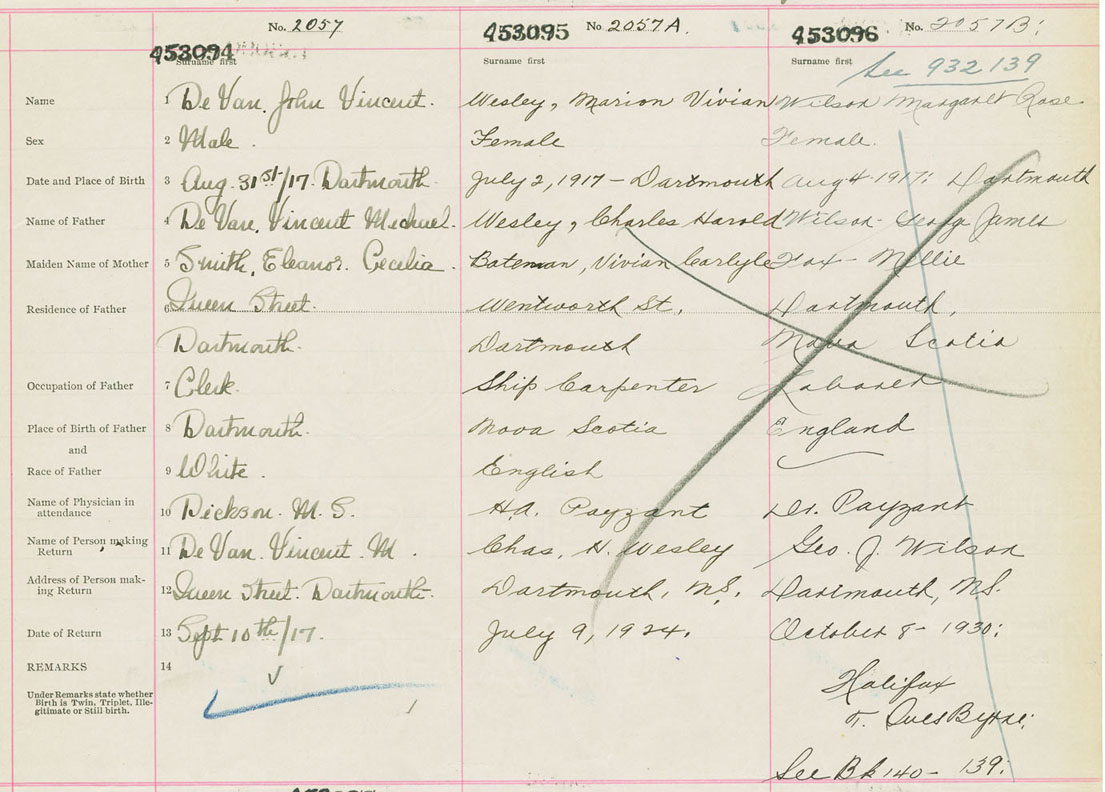 No. 2057 No 2057A. No. 2057B:
453094 453095 453096
Surname first Surname first Surname first
See 932139
Name 1 De Van, John Vincent. Wesley, Marion Vivian Wilson Margaret Rose
Sex 2 Male. Female Female.
Date and Place of Birth 3 Aug. 31st/17. Dartmouth. July 2, 1917 - Dartmouth Aug 4 1917: Dartmouth
Name of Father 4 De Van, Vincent Michael. Wesley, Charles Harold Wilson - George James
Maiden Name of Mother 5 Smith, Eleanor. Cecelia. Bateman, Vivian Carlyle Fox - Mellie
Residence of Father 6 Queen Street. Wentworth St. Dartmouth,
Dartmouth. Dartmouth Nova Scotia
Occupation of Father 7 Clerk. Ship Carpenter Laborer
Place of Birth of Father 8 Dartmouth. Nova Scotia England
and
Race of Father 9 White. English
Name of Physician in
attendance 10 Dickson. M. S. H.A. Payzant Dr. Payzant
Name of Person making
Return 11 De Van. Vincent. M. Chas. H. Wesley Geo. J. Wilson
Address of Person mak-
ing Return 12 Queen Street. Dartmouth. Dartmouth, N.S. Dartmouth, N.S.
Date of Return 13 Sept 10th/17. July 9, 1924. October 8 - 1930:
REMARKS 14
Under Remarks state whether
Birth is Twin, Triplet, Ille-
gitimate or Still birth.
Halifax
Byrne:
See Bk 140 - 139: